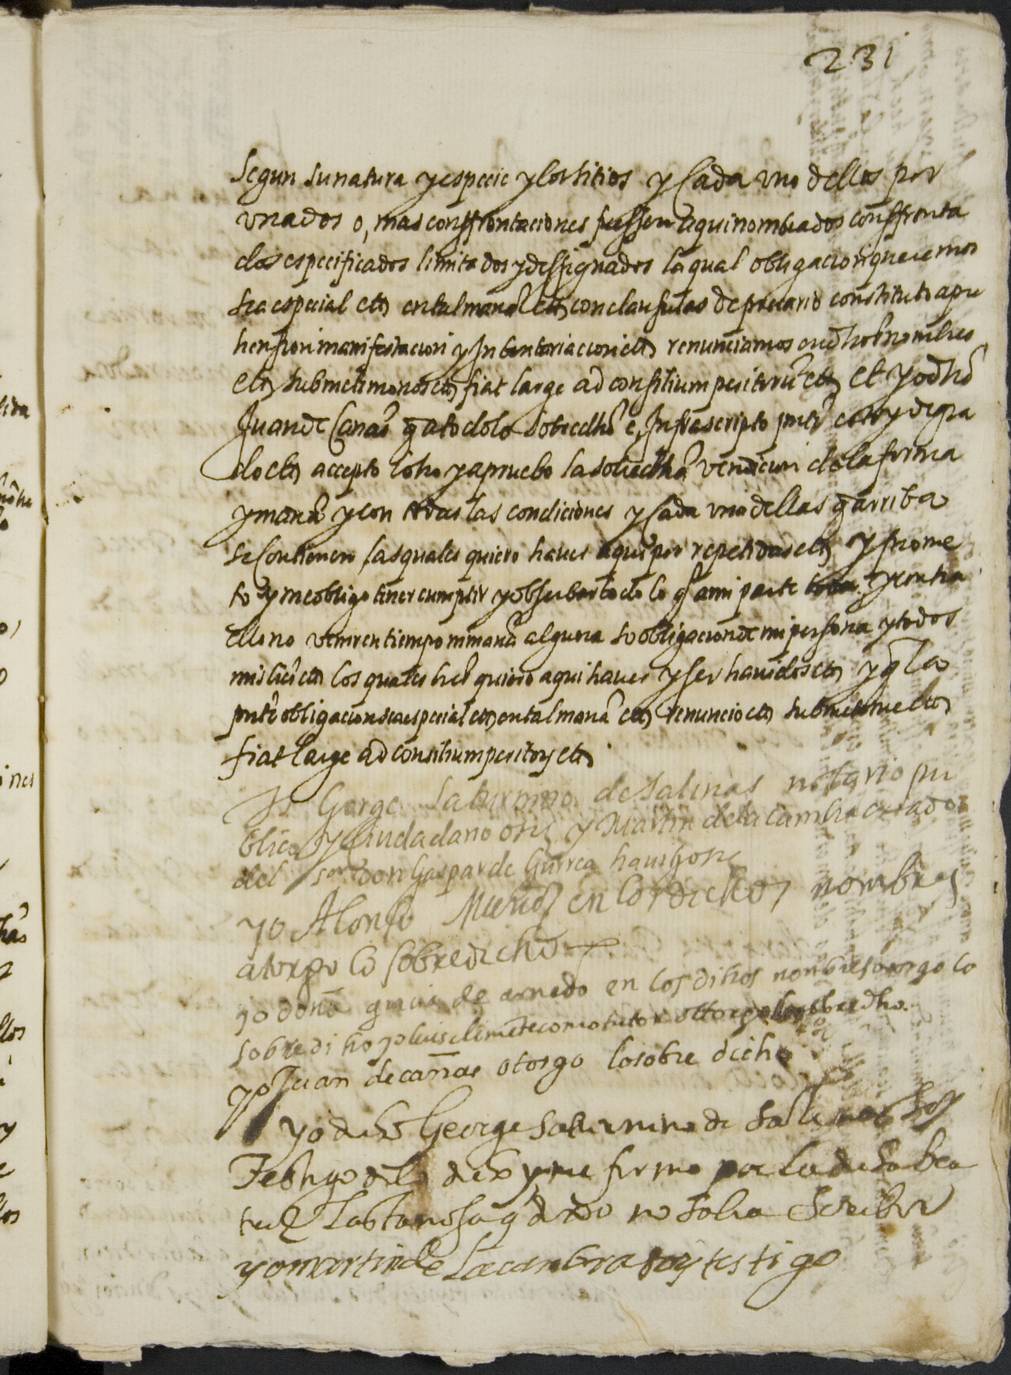 231
segun su natura y especie y los sitios y cada uno dellos por
una dos o, mas conffrontaciones fuessen aqui nombrados conffronta
dos especificados limitados y dessignados la qual obligacion queremos
sea especial etc en tal manera etc con clausulas de precario constituto apre
hension manifestacion y Inbentariacion etc renunciamos en dhos nombres
etc submetemonos etc fiat large ad consilium peritorum etc et yo dho
Juan de Canas q a todo lo sobredho e, Infrascripto pnte estoy de gra
do etc accepto loho y apruebo la sobredha vendicion de la forma
y mana y con todas las condiciones y cada una dellas q arriba
se contienen las quales quiero haver aqui por repetidas etc y prome
to y me obligo tener cumplir y observar todo lo q a mi parte toca y contra
ello no venir en tiempo ni mana alguna so obligacion de mi persona y todos
mis bies etc los quales bies quiero aqui haver y ser havidos etc y q la
pnte obligacion sea especial etc en tal mana etc renuncio etc submetome etc
fiat large ad consilium peritorum etc
Ts George Saturnino de Salinas notario pu
blico y Ciudadano osce y Martin de la Cambra criado
del sor don Gaspar de Gurrea havitjon osce
yo Alonso Muñoz en los dichos nombres
atorgo lo sobredicho
yo doña gracia de arnedo en los dihos nonbres otorgo lo
sobre di ho
yo Juan de cañas otorgo lo sobre dicho
yo dicho George Saturnino de Salinas soy
Testigo de lo dicho y me firmo por la dicha Bea
triz Lastanosa q dixo no sabia Screbir
yo martin de Lacanbra soy testigo